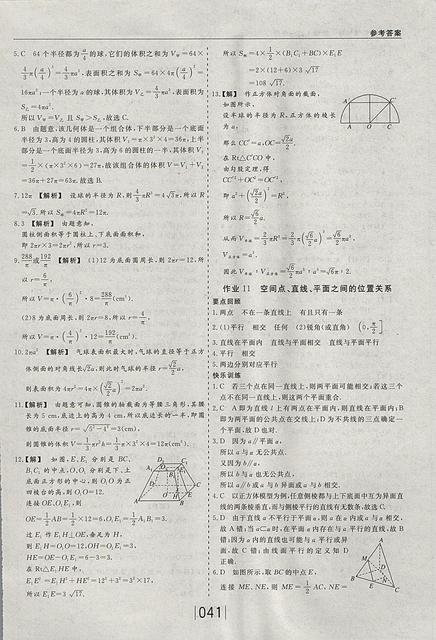 参考答案
5.C 64个半径都为a/4的球,它们的体积之和为V甲=64×
4/3π(a/4)³=4/3πa³,表面积之和为S甲=64×4π(a/4)²=
16πa²,一个半径为a的球,其体积为V乙=4/3πa³,表面积为
S乙=4πa².
所以V甲=V乙且S甲>S乙,故选C.
6.B 由题意,该几何体是一个组合体,下半部分是一个底面
半径为3,高为4的圆柱,其体积V₁=π×3²×4=36π,上半
部分是一个底面半径为3,高为6的圆柱的一半,其体积V₂
=1/2×(π×3²×6)=27π,故该组合体的体积V=V₁+V₂
=36π+27π=63π.故选B.
7.12π 【解析】 设球的半径为R,则4/3πR³=4√3π,所以R
=√3.所以S球=4πR²=12π.
8.3 【解析】 由题意知,
圆柱侧面积等于圆柱上、下底面面积和,
即2πr×3=2πr²,所以r=3.
9.288/π或192/π 【解析】 (1)12为底面圆周长,则2πr=12,所
以r=6/π,
所以V=π·(6/π)²·8=288/π(cm³).
(2)8为底面周长,则2πr=8,所以r=4/π,
所以V=π·(4/π)²·12=192/π(cm³).
10.2πa² 【解析】 气球表面积最大时,气球的直径等于正方
体侧面的对角线长√2a,则此时气球的半径r=√2/2a,
则表面积为4πr²=4π×(√2/2a)²=2πa².
11.【解析】 由题意可知,圆锥的轴截面为等腰三角形,其腰
长为5 cm,底边上的高为4 cm,所以底边长的一半,即圆
锥的底面半径r=√5²-4²=3(cm),
则圆锥的体积V=1/3πr²h=1/3π×3²×4=12π(cm³).
12.【解】 如图,E,E₁分别是BC,
B₁C₁的中点,O,O₁分别是下、上
底面正方形的中心,则O₁O为正
四棱台的高,则O₁O=12.
连接OE,O₁E₁,则
OE=1/2AB=1/2×12=6,O₁E₁=1/2A₁B₁=3.
过E₁作E₁H⊥OE,垂足为H,
则E₁H=O₁O=12,OH=O₁E₁=3,
HE=OE-O₁E₁=6-3=3.
在Rt△E₁HE中,
E₁E²=E₁H²+HE²=12²+3²=3²×17,
所以E₁E=3√17.
所以S侧=4×1/2×(B₁C₁+BC)×E₁E
=2×(12+6)×3√17
=108√17.
13.【解】 作正方体对角面的截面,
如图所示,
设半球的半径为R,正方体的棱长
为a,
那么CC′=a,OC=√2a/2.
在Rt△C′CO中,
由勾股定理,得
CC′²+OC²=OC′²,
即a²+(√2a/2)²=R²,
所以R=√6/2a.
从而V半球=2/3πR³=2/3π(√6/2a)³=√6/2πa³,
V正方体=a³.
因此V半球:V正方体=√6/2πa³:a³=√6π:2.
作业11 空间点、直线、平面之间的位置关系
要点回顾
1.两点 不在一条直线上 有且只有一条
2.(1)平行 相交 任何 (2)锐角(或直角) (0,π/2]
3.直线在平面内 直线与平面相交 直线与平面平行
4.平行 相交
5.两边分别对应平行
快乐训练
1.C 若三个点在同一直线上,则两平面可能相交;若这三个
点不在同一直线上,则这两个平面重合.
2.C A即为直线l上有两点在平面内,则直线在平面内;B
即为两平面的公共点在交线上;D为不共线的三点确定一
个平面.故D也对.
3.D 因为a∥平面α,
所以a与α无公共点.
又因为b⊂α,
所以b与a也无公共点,
所以a∥b或a与b异面或a与b相交.
4.C 以正方体模型为例,任意侧棱都与上下底面中互为异面直
线的两条棱垂直,而与侧棱平行的直线有无数条.故选C.
5.D 由于直线a不平行于平面α,则a在α内或a与α相交,
故A错;当a⊂α时,在平面α内存在与a平行的直线,故B
错;因为α内的直线也可能与a平行或异
面,故C错;由线面平行的定义知D
正确.
6.D 如图所示,取BC的中点E,
连接ME,NE,则ME=1/2AC,NE=
041